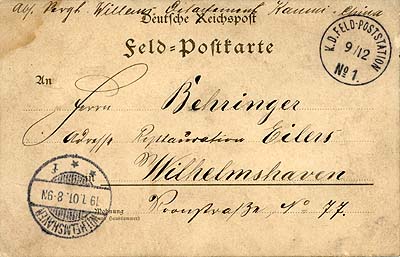 Abs. Bergh. Willems, Detachement Kaumi-China
Deutsche Reichspost
Feld-Postkarte
K.D. FELD-POSTSTATION
9/12
No 1.
An
Herrn Behringer
Adresse Restauration Eilers
Wilhelmshaven
Wohnung
Roonstraße No 77.
WILHELMSHAVEN
19.1.01.8-9N
* * 1